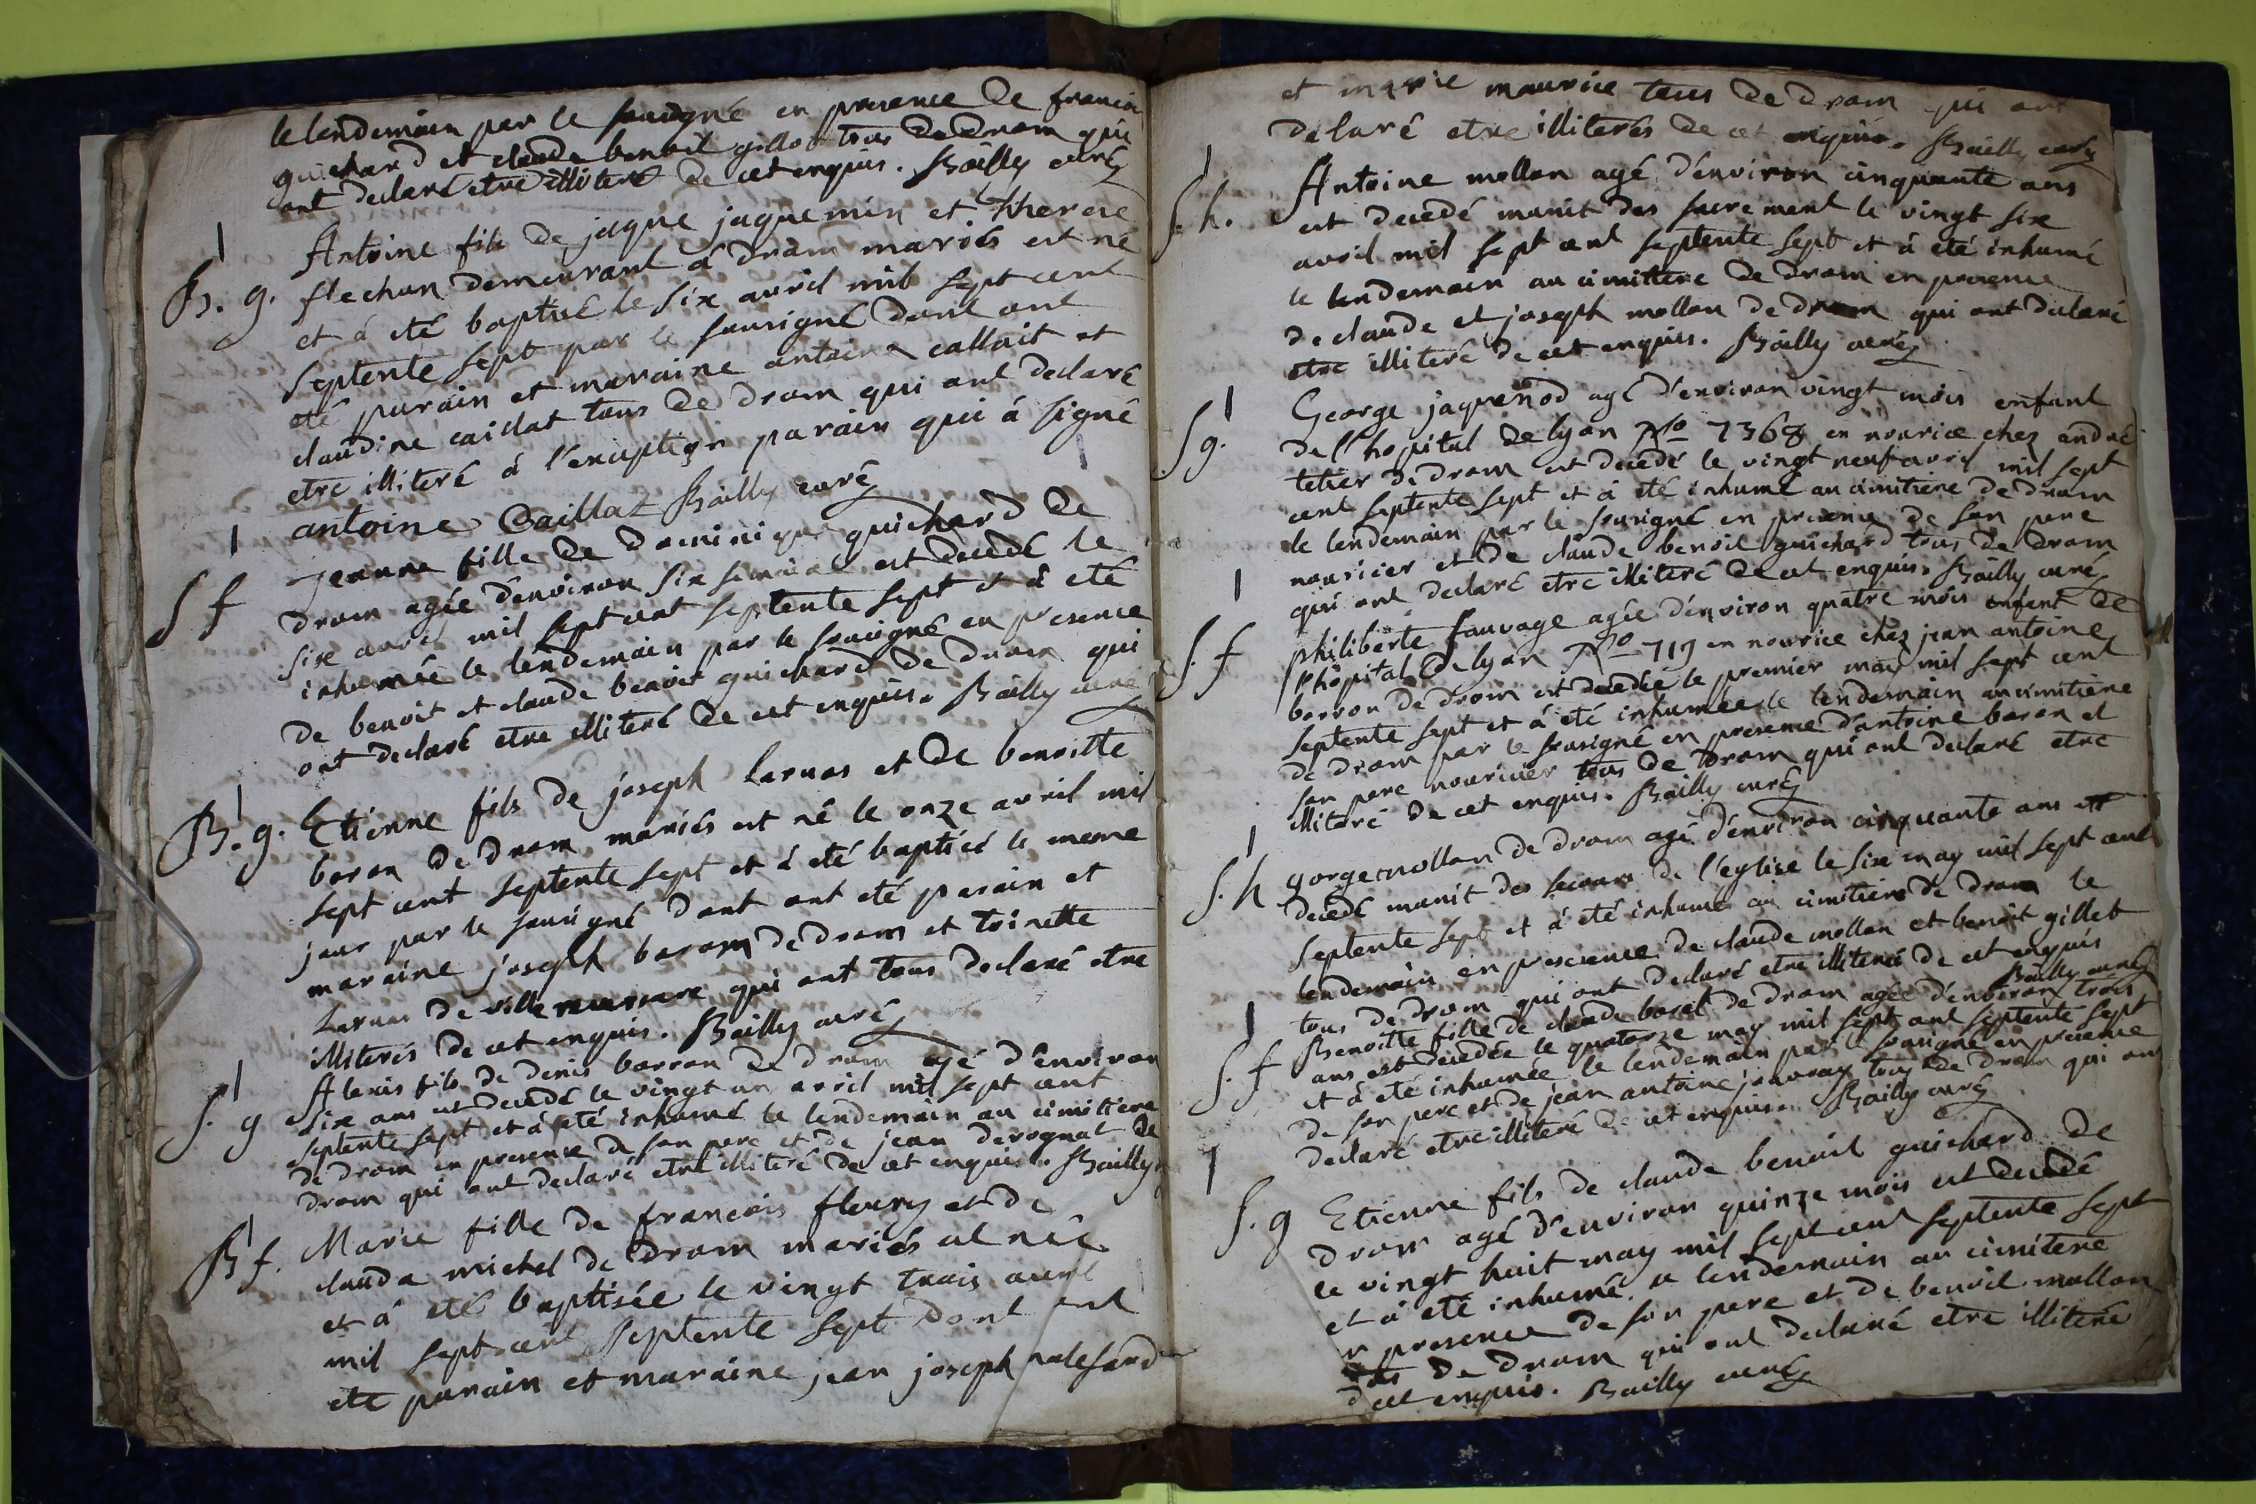 le lendemain par le sousigné en presence de francois
guichard et claude benoit gillot tous de drom qui
ont declaré etre illiteré de cet enquis. Bailly curé
B. g. Antoine fils de jaque jaquemin et therese
flechon demeurant á drom mariés est né
et á eté baptisé le six avril mil sept cent
septente sept par le sousigné dont ont
eté parain et maraine antoine callait et
claudine caillat tous de drom qui ont declaré
etre illiteré á l'exception parain qui á signé
antoine Caillat Bailly curé
S f Jeanne fille de dominique guichard de
drom agée d'environ six semaine est decedé le
six avril mil sept cent septente sept et á eté
inhumée le lendemain par le sousigné en presence
de benoit et claude benoit guichard de drom qui
ont declaré etre illiteré de cet enquis. Bailly curé
B. g. Etienne fils de joseph Larnas et de benoitte
boron de drom mariés est né le onze avril mil
sept cent septente sept et á eté baptisé le meme
jour par le sousigné dont ont eté parain et
maraine joseph boron de drom et toinette
Larnas de ville qui ont tous declaré etre
illiterés de cet enquis. Bailly curé
S. g Alexis fils de denis borron de drom agé d'environ
six ans est decedé le vingt un avril mil sept cent
septente sept et á eté inhumé le lendemain au cimitiere
de drom en presence de son pere et de jean derognat de
drom qui ont declaré etre illiteré de cet enquis. Bailly
B f. Marie fille de francois fleury et de
clauda michel de drom mariés est née
et á eté baptisée le vingt trois avril
mil sept cent septente sept dont ont
eté parain et maraine jean joseph
et marie maurice tous de drom qui ont
délaré etre illiterés de cet enquis. Bailly curé
S. h. Antoine mollon agé d'environ cinquante ans
est decedé munit des sacrement le vingt six
avril mil sept cent septente sept et á eté inhumé
le lendemain au cimitiere de drom en presence
de claude et joseph mollon de drom qui ont declaré
etre illiteré de cet enquis. Bailly curé
S g. George jaquenod agé d'environ vingt mois enfant
de l'hopital de lyon No 7368 en nourice chez andré
tetier de drom est decedé le vingt neuf avril mil sept
cent septente sept et á eté inhumé au cimitiere de drom
le lendemain par le sousigné en presence de son pere
nouricier et de claude benoit guichard tous de drom
qui ont declaré etre illiteré de cet enquis. Bailly curé
S. f philiberte sauvage agée d'environ quatre mois enfant de
l'hôpital de lyon No 719 en nourice chez jean antoine
borron de drom est decedée le premier may mil sept cent
septente sept et á eté inhumée le lendemain au cimitiere
de drom par le sousigné en presence d'antoine boron et
son pere nouricier tous de drom qui ont declaré etre
illiteré de cet enquis. Bailly curé
S. h gorge mollon de drom agé d'environ cinquante ans est
decedé munit des secours de l'eglise le six may mil sept cent
septente sept et á eté inhumé au cimitiere de drom le
lendemain en presence de claude mollon et benoit gillet
tous de drom qui ont declaré etre illiteré de cet enquis
Bailly curé
S. f Benoitte fille de claude borel de drom agée d'environ trois
ans est decedée le quatorze may mil sept cent septente sept
et á eté inhumée le lendemain par le sousigné en presence
de son pere et de jean antoine jouvray tous de drom qui ont
declaré etre illiteré de cet enquis. Bailly curé
S. g Etienne fils de claude benoit guichard de
drom agé d'environ quinze mois est decedé
le vingt huit may mil sept cent septente sept
et á eté inhumé le lendemain au cimitiere
en presence de son pere et de benoit mollon
tous de drom qui ont declaré etre illiteré
de cet enquis. Bailly curé